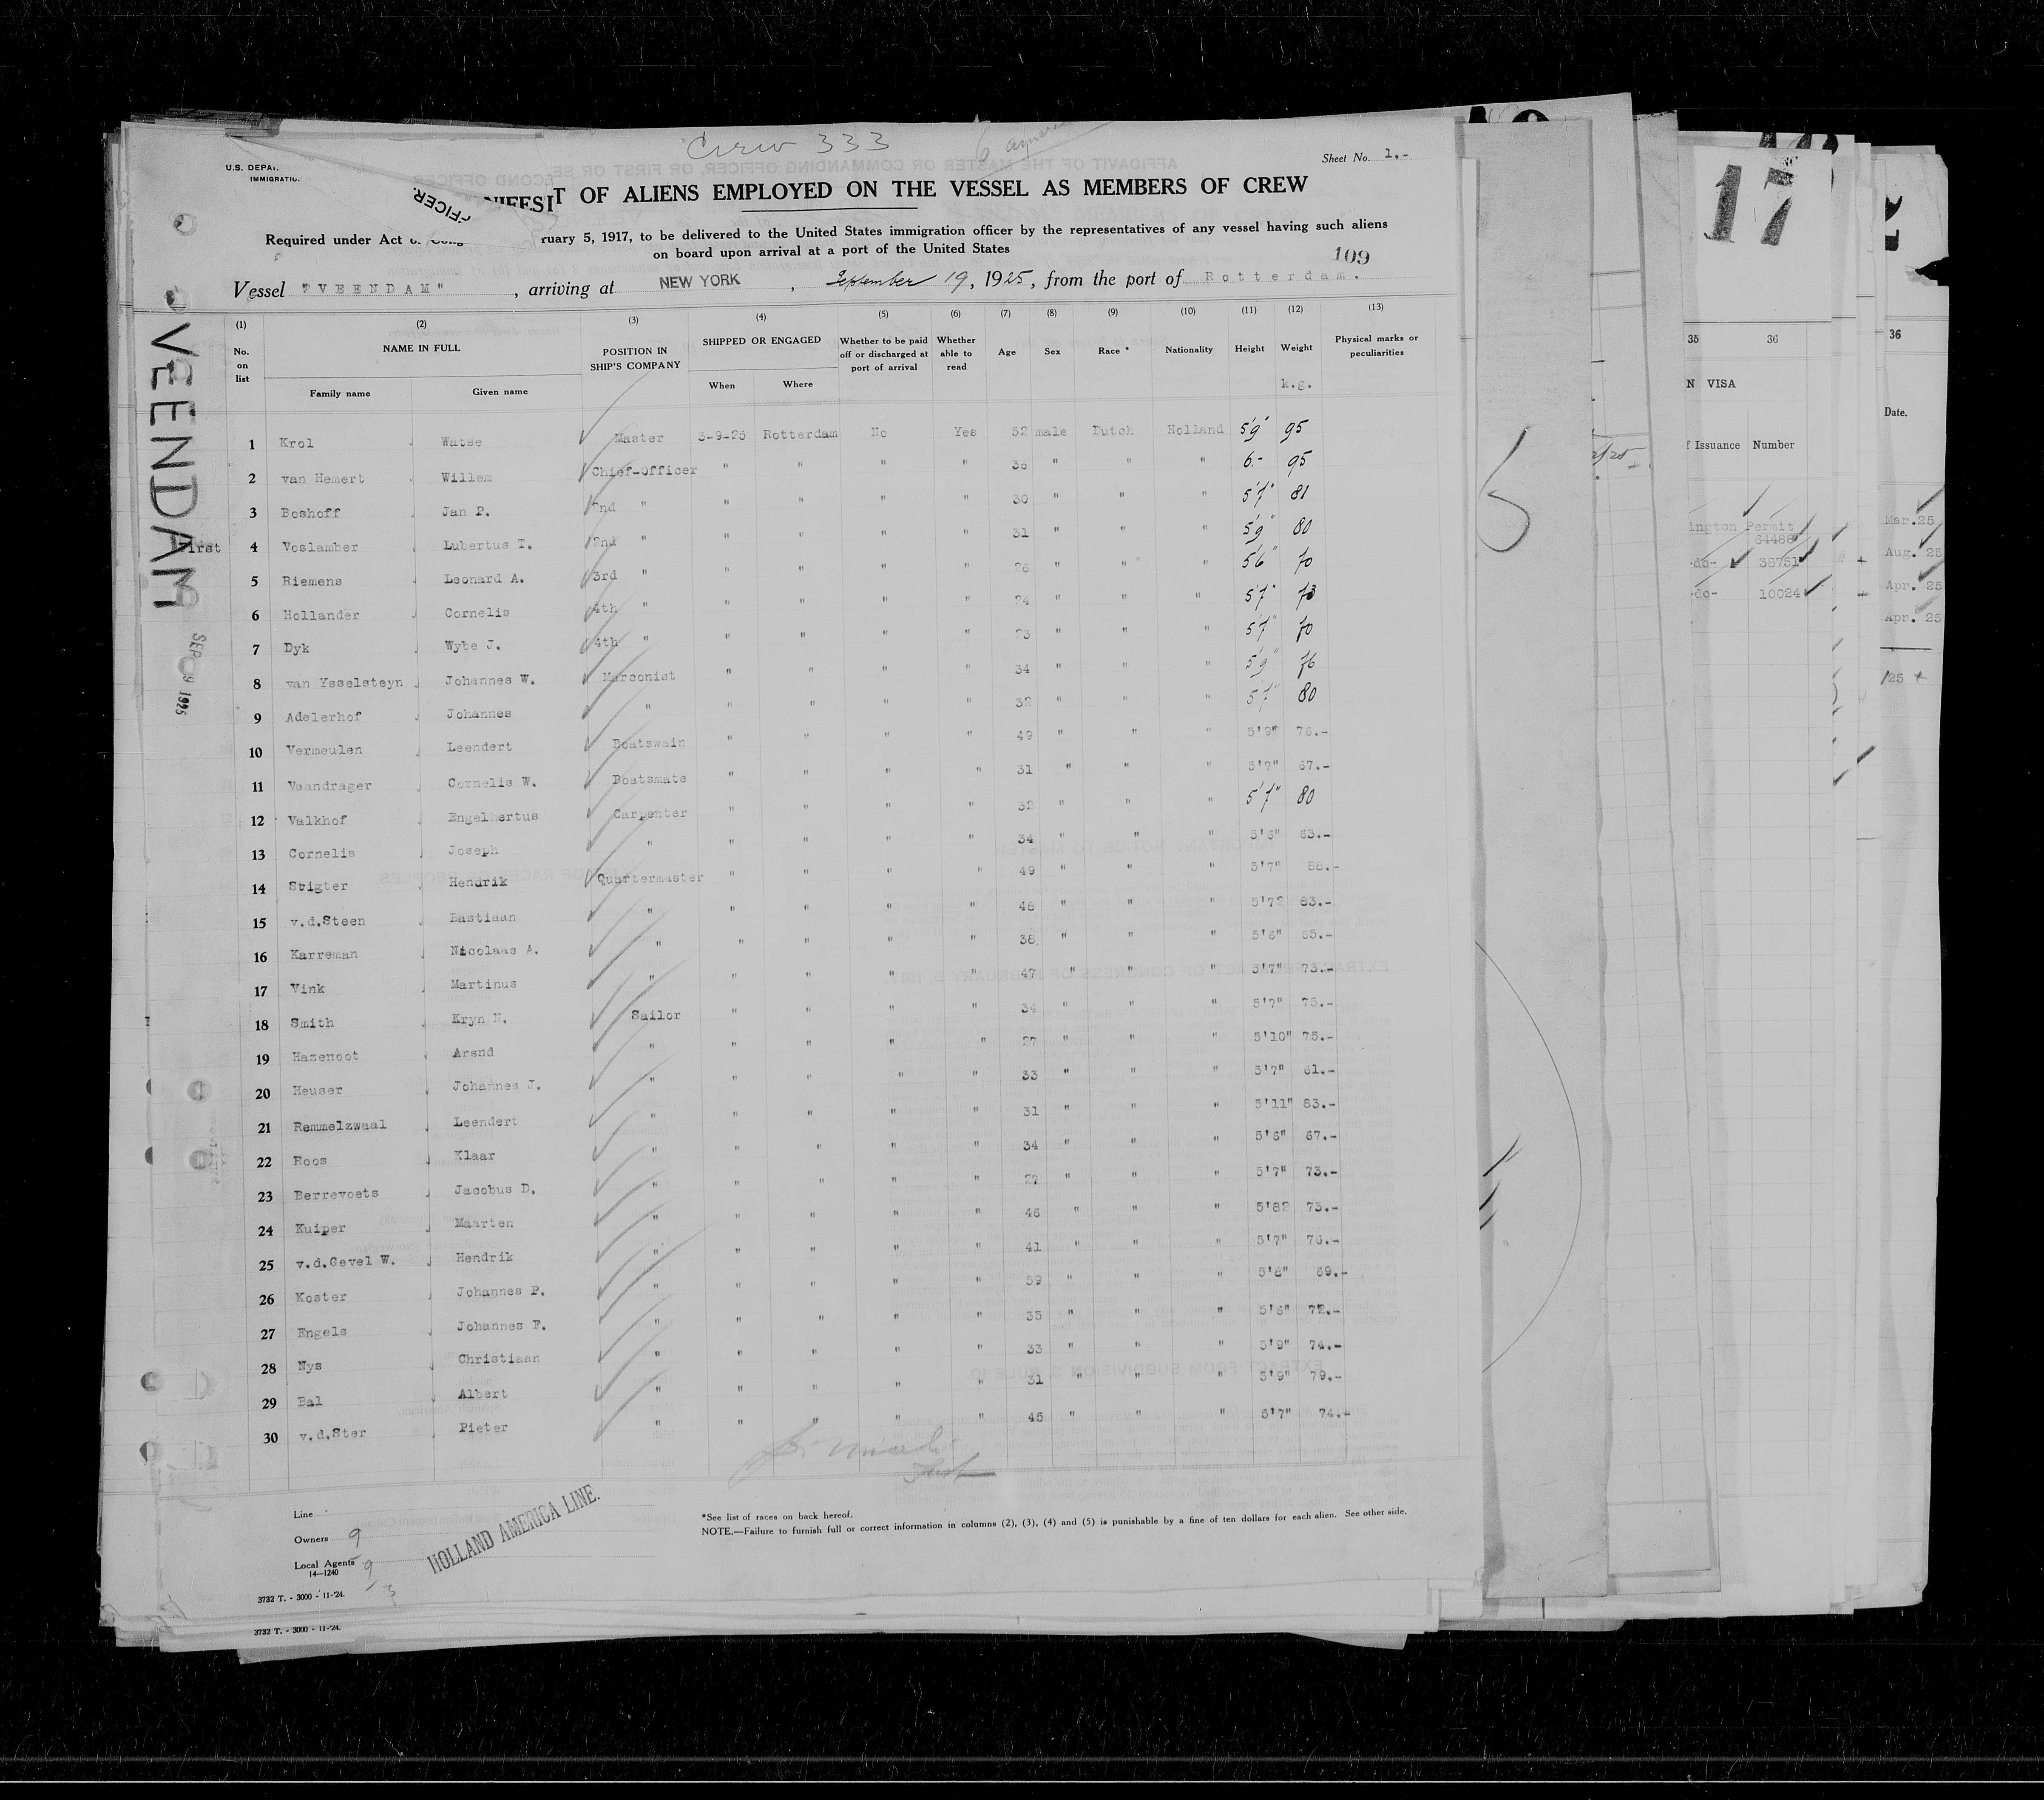 Crew 333
Sheet No. 1.-
U.S. DEPA
IMMIGRATIO
NIFEST OF ALIENS EMPLOYED ON THE VESSEL AS MEMBERS OF CREW
Required under Act of Cong ruary 5, 1917, to be delivered to the United States immigration officer by the representatives of any vessel having such aliens
on board upon arrival at a port of the United States
109
Vessel "VEENDAM", arriving at NEW YORK, September 19, 1925, from the port of Rotterdam.
VEENDAM
SEP 19 1925
(1) (2) (3) (4) (5) (6) (7) (8) (9) (10) (11) (12) (13)
No. on list NAME IN FULL Family name Given name POSITION IN SHIP'S COMPANY SHIPPED OR ENGAGED When Where Whether to be paid off or discharged at port of arrival Whether able to read Age Sex Race * Nationality Height Weight k.g. Physical marks or peculiarities
1 Krol Watse Master 3-9-25 Rotterdam No Yes 52 male Dutch Holland 5'9" 95
2 van Hemert Willem Chief-Officer " " " " 36 " " " 6.- 95
3 Boshoff Jan P. 2nd " " " " " 30 " " " 5'7" 81
First 4 Voslamber Lubertus T. 2nd " " " " " 31 " " " 5'9" 80
5 Riemens Leonard A. 3rd " " " " " 26 " " " 5'6" 70
6 Hollander Cornelis 4th " " " " " 24 " " " 5'7"
7 Dyk Wybe J. 4th " " " " " 23 " " " 5'7" 70
8 van Ysselsteyn Johannes W. Marconist " " " " 34 " " " 5'9" 76
9 Adelerhof Johannes " " " " " 32 " " " 5'7" 80
10 Vermeulen Leendert Boatswain " " " " 49 " " " 5'9" 76.-
11 Vaandrager Cornelis W. Boatsmate " " " " 31 " " " 5'7" 67.-
12 Valkhof Engelhertus Carpenter " " " " 32 " " " 5'7" 80
13 Cornelis Joseph " " " " " 34 " " " 5'6" 63.-
14 Stigter Hendrik Quartermaster " " " " 49 " " " 5'7" 88.-
15 v.d.Steen Bastiaan " " " " " 48 " " " 5'72 83.-
16 Karreman Nicolaas A. " " " " " 38 " " " 5'6" 65.-
17 Vink Martinus " " " " " 47 " " " 5'7" 73.-
18 Smith Kryn N. Sailor " " " " 34 " " " 5'7" 75.-
19 Hazenoot Arend " " " " " 27 " " " 5'10" 75.-
20 Heuser Johannes J. " " " " " 33 " " " 5'7" 61.-
21 Remmelzwaal Leendert " " " " " 31 " " " 5'11" 83.-
22 Roos Klaar " " " " " 34 " " " 5'6" 67.-
23 Berrevoets Jacobus D. " " " " " 27 " " " 5'7" 73.-
24 Kuiper Maarten " " " " " 46 " " " 5'82 73.-
25 v.d.Gevel W. Hendrik " " " " " 41 " " " 5'7" 76.-
26 Koster Johannes P. " " " " " 59 " " " 5'8" 69.-
27 Engels Johannes F. " " " " " 35 " " " 5'6" 72.-
28 Nys Christiaan " " " " " 33 " " " 5'9" 74.-
29 Bal Albert " " " " " 31 " " " 5'9" 79.-
30 v.d.Ster Pieter " " " " " 45 " " " 5'7" 74.-
Line
Owners 9
Local Agents 9
14—1240
3
HOLLAND AMERICA LINE.
*See list of races on back hereof.
NOTE.—Failure to furnish full or correct information in columns (2), (3), (4) and (5) is punishable by a fine of ten dollars for each alien. See other side.
3732 T. - 3000 - 11-'24.
3732 T. - 3000 - 11-'24.
17
35 36
N VISA
f Issuance Number
ington Permit
64488
-do- 36751
-do- 10024
36
Date.
Mar.25
Aug. 25
Apr. 25
Apr. 25
/25